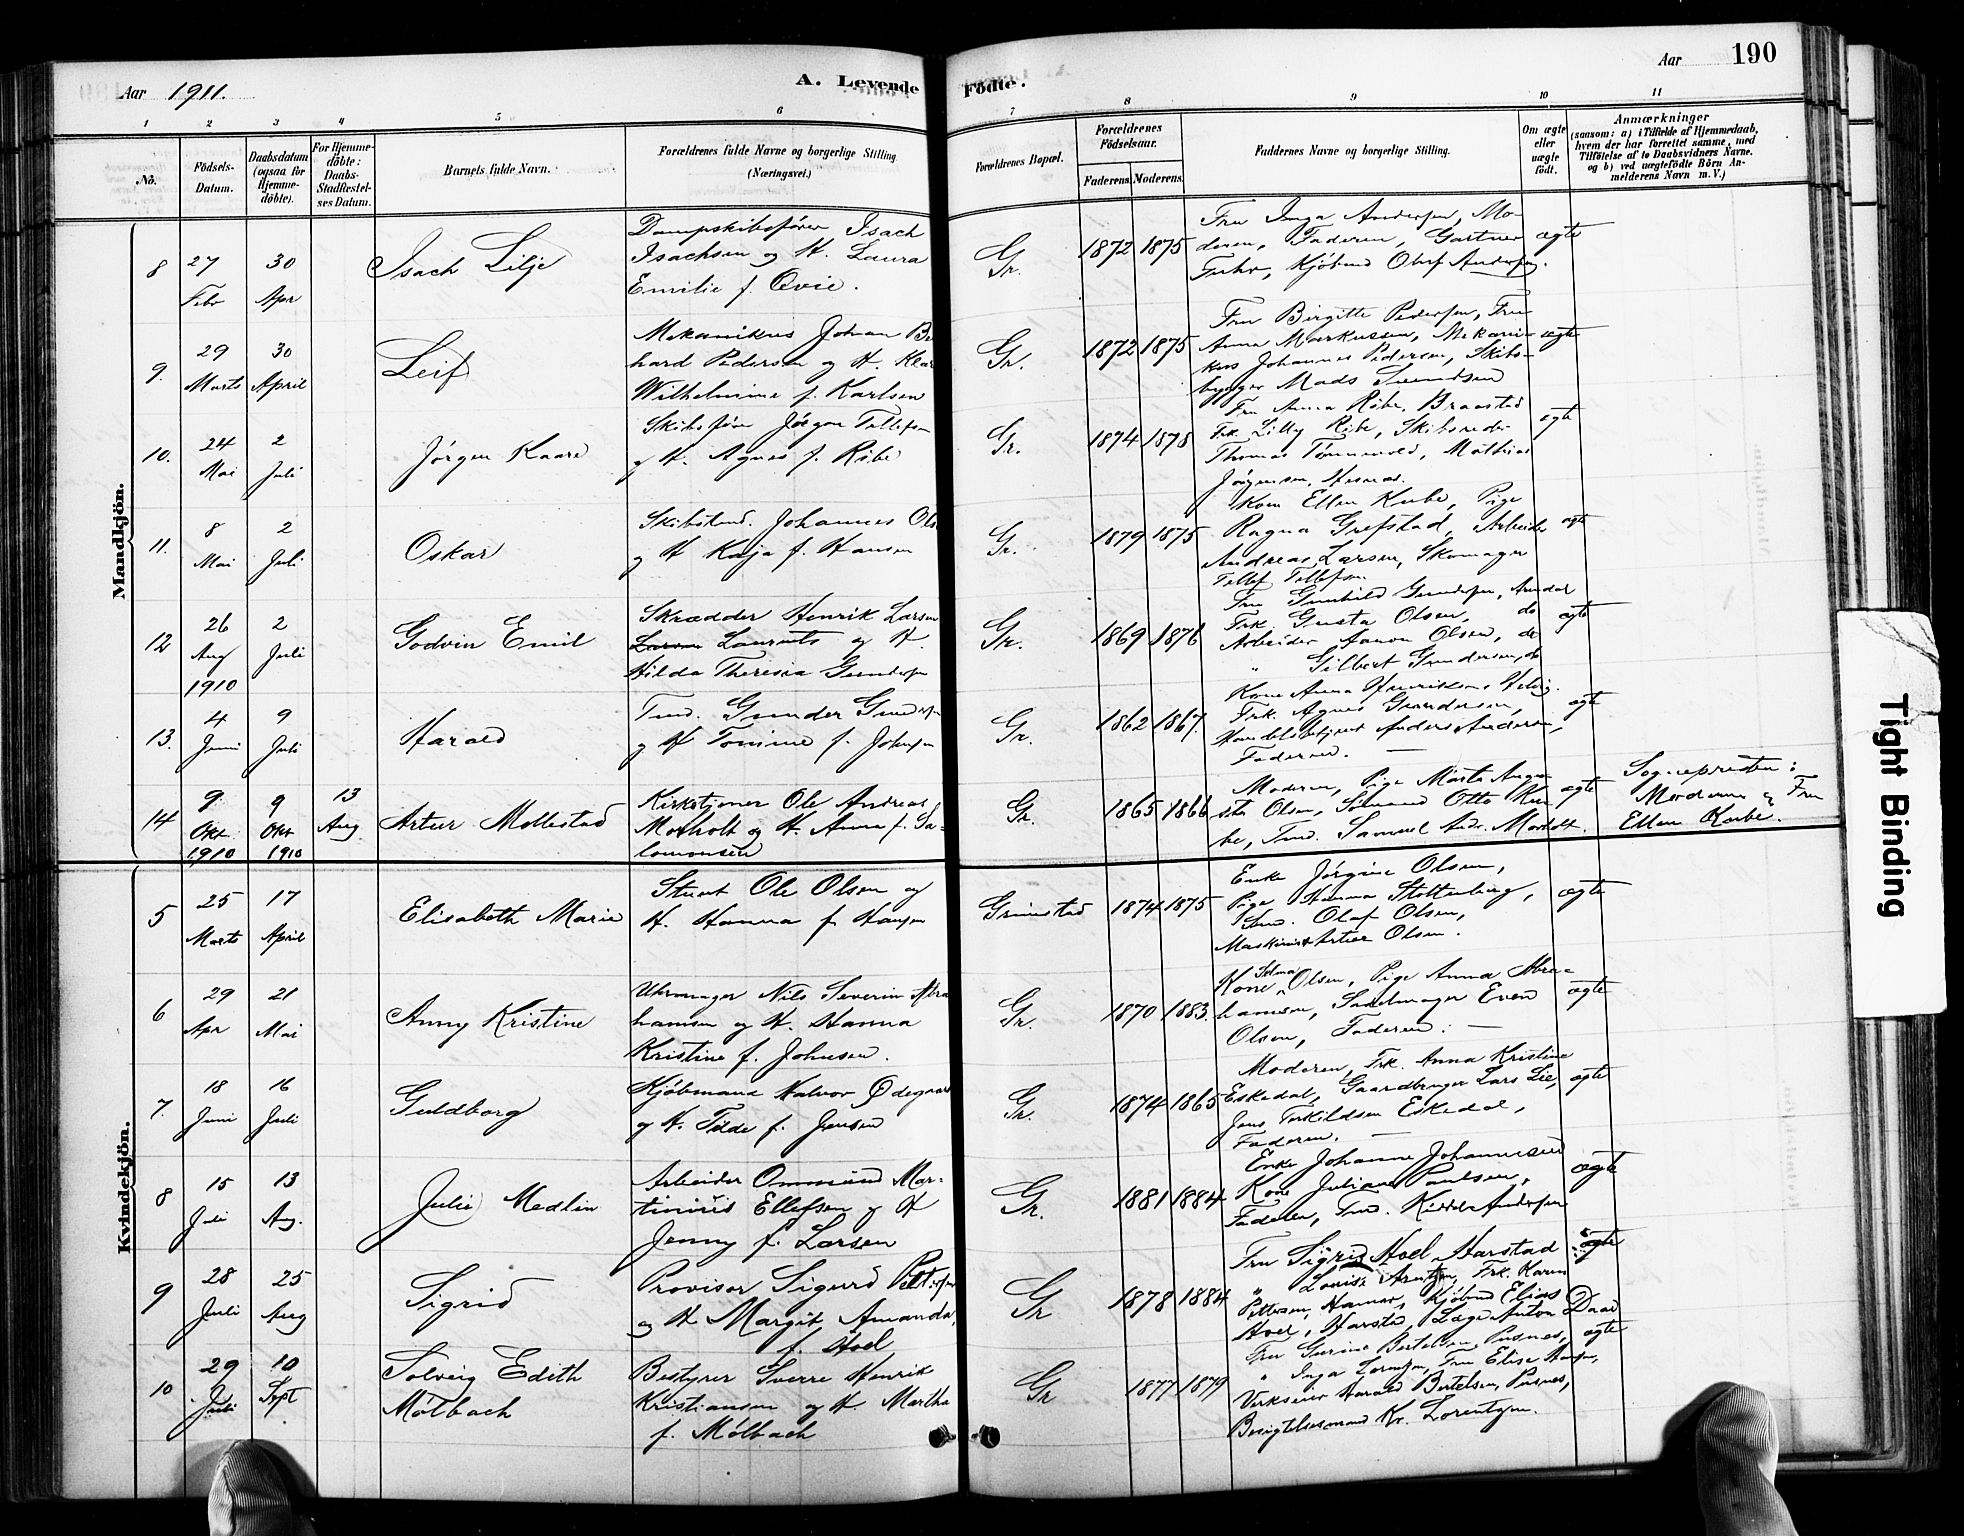 Aar 1911.
A. Levende
Födte.
Aar
190
1 2 3 4 5 6 7 8 9 10 11
No.
Födsels-Datum.
Daabsdatum (ogsaa for Hjemme-döbte).
For Hjemme-döbte: Daabs-Stadfæstel-ses Datum.
Barnets fulde Navn.
Forældrenes fulde Navne og borgerlige Stilling. (Næringsvei.)
Forældrenes Bopæl.
Forældrenes Födselsaar.
Faderens. Moderens.
Faddernes Navne og borgerlige Stilling.
Om ægte eller uægte födt.
Anmærkninger
(saasom: a) i Tilfælde af Hjemmedaab, hvem der har forrettet samme, med Tilföielse af to Daabsvidners Navne. og b) ved uægtefödte Börn An-melderens Navn m. V.)
Mandkjön.
8 27 Febr 30 Apr Isach Lilje
Dampskibsfører Isach
Isachsen og H. Laura
Emilie f. Evie.
Gr. 1872 1875
Fru Inga Andersen, Mo-
deren, Faderen, Gartner
Fuhr, Kjøbmd Oluf Andersen.
ægte
9. 29 Marts 30 April Leif
Mekanikus Johan
hard Pedersen og H.
Wilhelmine f. Karlsen
Gr. 1872 1875
Fru Birgitte Pedersen, Fru
Anna Markussen, Mekani-
kus Johannes Pedersen, Skibs-
bygger Mads Svendsen
ægte
10. 24 Mai 2 Juli Jørgen Kaare
Skibsfører Jörgen Tellefsen
og H. Agnes f. Ribe
Gr. 1874 1878
Fru Anna Ribe, Braastad
Frk. Lilly Ribe, Skibsreder
Thomas Tønnevold, Mathias
Jørgensen, Hesnæs.
ægte
11. 8 Mai 2 Juli Oskar
Skibstmd. Johannes Ols
og H Kaja f. Hansen
Gr. 1879 1875
Kone Ellen Kube, Pige
Ragna Grefstad, Arbeider
Andreas Larsen, Skomager
Tellef Tellefsen.
ægte
12 26 Aug 1910 2 Juli Godvin Emil
Skrædder Henrik Larsen
Larsen Laurents og H.
Hilda Theresia Gundersen
Gr. 1869 1876
Fru Gunhild Gundersen, Arendal
Frk. Gusta Olsen, do
Arbeider Aanon Olsen, do
" Gilbert Gundersen, do
ægte
13. 4 Juni 9 Juli Harald
Tmd. Gunder Gundersen
og H Tomine f. Johnsen
Gr. 1862 1867.
Kone Anna Henriksen,
Frk. Agnes Gundersen,
Handelsbetjent Anders Andersen,
Faderen. —
ægte
14 9 Okt 1910 9 Okt 1910 13 Aug Artur Mollestad
Kirketjener Ole Andreas
Motholt og H. Anna f. Sa-
lomonsen
Gr. 1865 1866
Moderen, Pige Marta Augu-
sta Olsen, Sømand Otto Ku-
be, Tmd. Samuel Andr. Motholt.
ægte
Sognepresten:
Moderen og Fru
Ellen Kube.
Kvindekjön.
5 25 Marts 17 April Elisabeth Marie
Stuert Ole Olsen og
H. Hanna f. Hansen
Grimstad 1874 1875
Enke Jørgine Olsen,
Pige Hanna Stoltenberg,
Smd. Olaf Olsen,
Maskinist Artur Olsen.
ægte
6 29 Apr 21 Mai Anny Kristine
Uhrmager Nils Severin Abra
hamsen og H. Hanna
Kristine f. Johnsen.
Gr. 1870 1883.
Kone Selma Olsen, Pige Anna Abra-
hamsen, Sadelmager Even
Olsen, Faderen. —
ægte
7. 18 Juni 16 Juli Guldborg
Kjøbmand Halvor Ødegaard
og H. Tilde f. Jensen
Gr. 1874 1865
Moderen, Frk. Anna Kristine
Eskedal, Gaardbruger Lars Lie,
Jens Torkildsen Eskedal,
Faderen. —
ægte
8 15 Juli 13 Aug. Julie Medlin
Arbeider Ommund Mar-
tinius Ellefsen og H
Jenny f. Larsen
Gr. 1881 1884
Enke Johanne Johannesen
Kone Juliane Paulsen,
Faderen, Tmd. Kittel Andersen
ægte
9 28 Juli 25 Aug Sigrid
Provisor Sigurd Pettersen
og H Margit Amanda
f. Hoel
Gr 1878 1884
Fru Sigrid Hoel, Harstad
" Louise Arntzen, Frk. Karen
Pettersen, Hamar, Kjøbmd Elias
Hoel, Harstad, Læge Anton Daae
ægte
10 29 Juli 10 Sept Solveig Edith
Mölbach
Bestyrer Sverre Henrik
Kristiansen og H. Martha
f. Mölbach
Gr 1877 1879
Fru Gurine Bertelsen, Pusnes,
" Inga Lorentzen, Fru Elise Hansen,
Verkseier Harald Bertelsen, Pusnes,
Besigtelsesmand Kr. Lorentzen.
ægte
Tight Binding